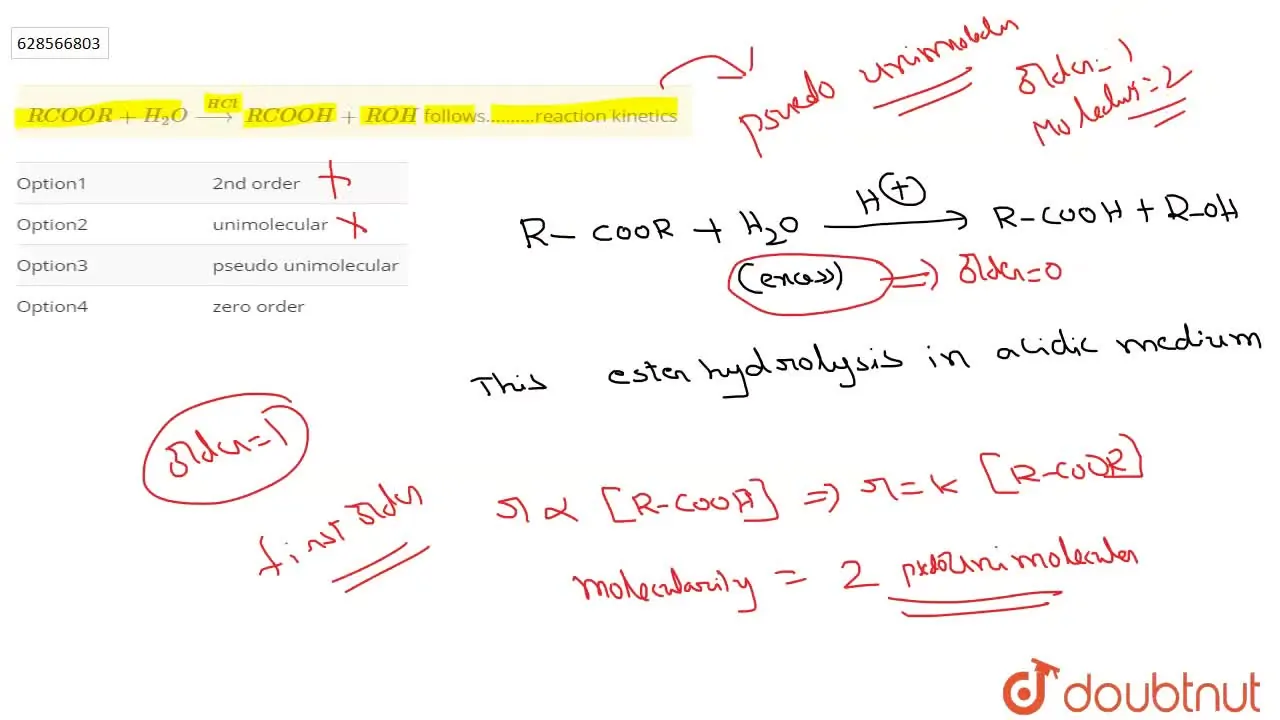 628566803
RCOOR + H₂O HCl→ RCOOH + ROH follows..........reaction kinetics
Option1 2nd order
Option2 unimolecular
Option3 pseudo unimolecular
Option4 zero order
order=1
molecular=2
R-COOR + H₂O H⊕→ R-COOH + R-OH
(excess) ⇒ order=0
This ester hydrolysis in acidic medium
order=1
first order
r ∝ [R-COOR] ⇒ r=k [R-COOR]
molecularity = 2
doubtnut